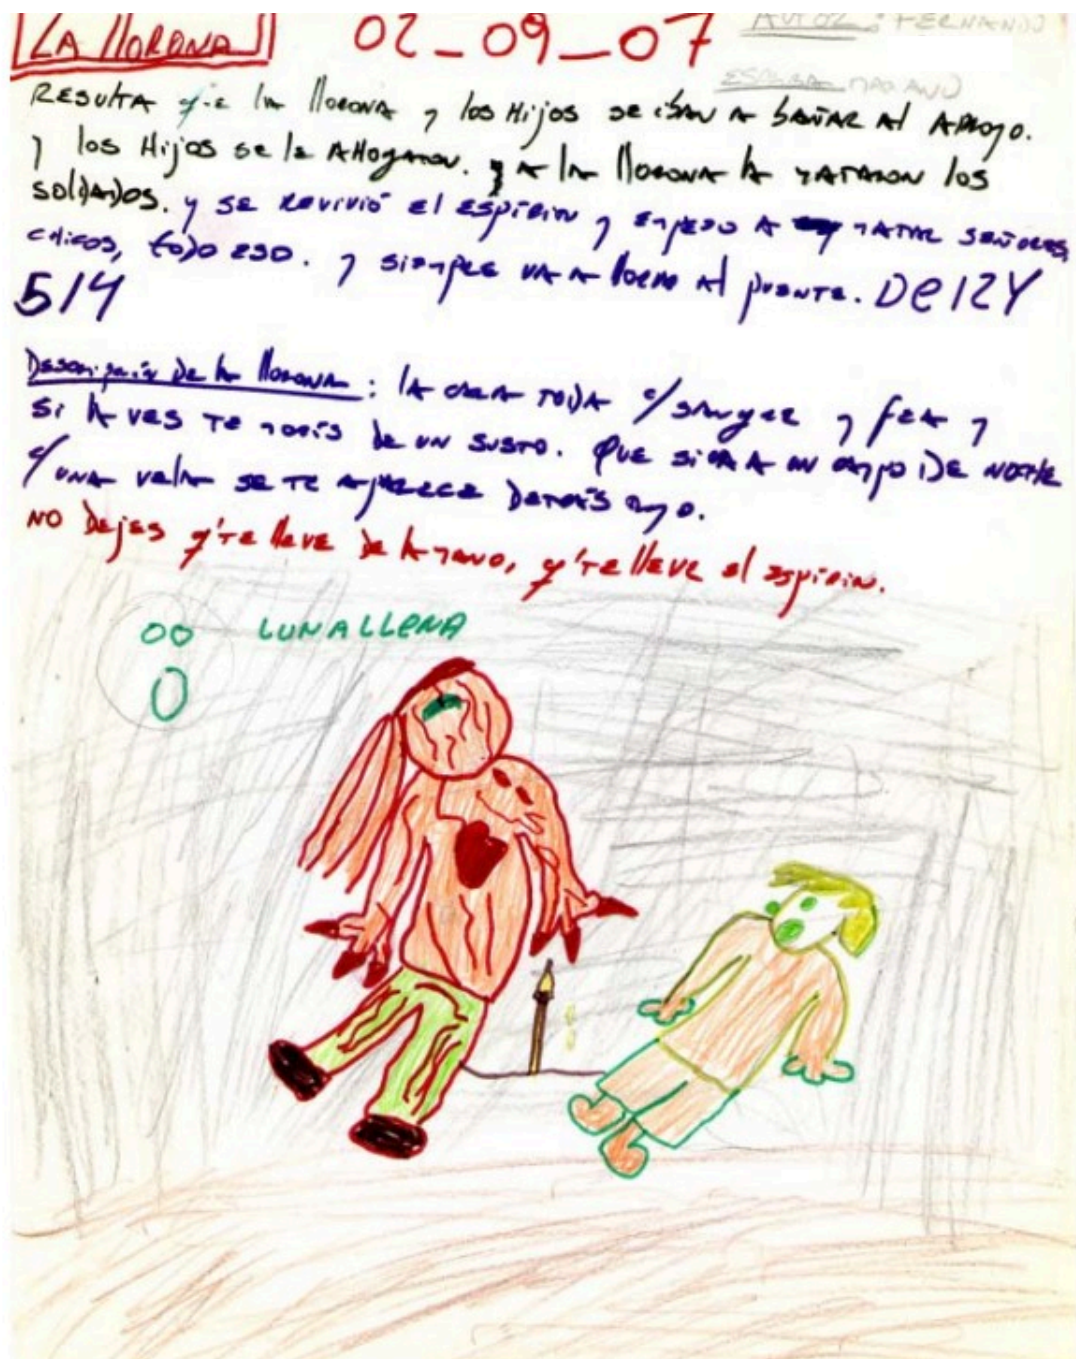 LA LLORONA 02-09-07 AUTOR: FERNANDO
ESCRIBA MARIANO
RESULTA q-e la llorona y los Hijos se iban A bañar Al ARROYO.
y los Hijos se le AHogaron. y A la llorona la mataron los
soldados. y se revivió el espíritu y empezó A matar señores,
chicos, todo eso. y siempre va a llorar al puente. DE 12 Y
514
Descripción de la llorona: la cara toda c/sangre y fea y
si la ves te morís de un susto. Que si va a un campo de noche
c/una vela se te aparece detrás tuyo.
NO dejes q'te lleve de la mano, q'te lleve el espíritu.
LUNA LLENA